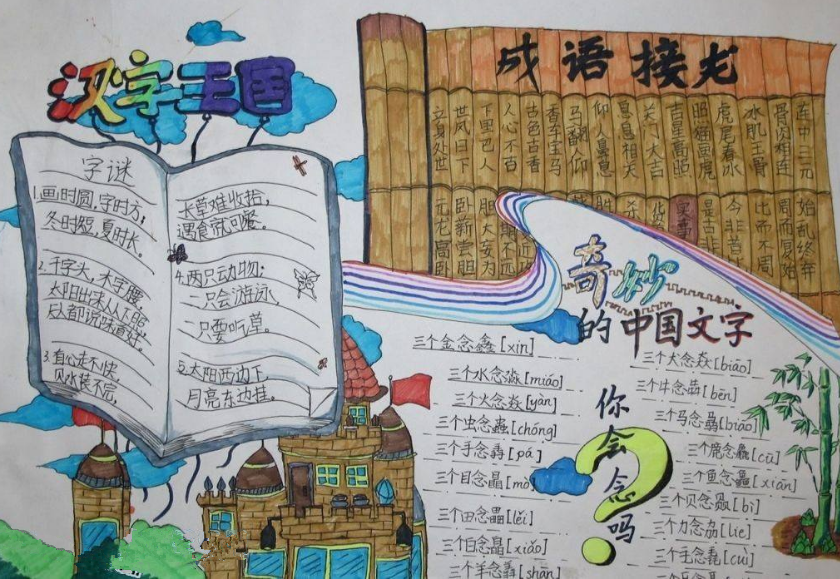 汉字王国
成语接龙
连中三元
骨肉相连
冰肌玉骨
虎尾春冰
照猫画虎
吉星高照
关门大吉
仰人鼻息
香车宝马
古色古香
人心不古
下里巴人
世风日下
立身处世
始乱终弃
周而复始
比而不周
今非昔比
是古非
实事
胆大妄为
卧薪尝胆
元龙高卧
字谜
1.画时圆,字时方,
冬时短,夏时长。
2.千字头,木字腰,
太阳出来从下照,
人人都说味道好。
3.有心走不快,
见水装不完,
长草难收拾,
遇食就可餐。
4.两只动物:
一只会游泳,
一只要吃草。
5.太阳西边下
月亮东边挂。
奇妙
的中国文字
你会念吗
?
三个金念鑫[xin]
三个水念淼[miáo]
三个火念焱[yàn]
三个虫念蟲[chóng]
三个手念掱[pá]
三个目念瞐[mò]
三个田念畾[lěi]
三个白念皛[xiǎo]
三个羊念羴[shān]
三个犬念猋[biāo]
三个牛念犇[bēn]
三个马念骉[biāo]
三个鹿念麤[cū]
三个鱼念鱻[xiān]
三个贝念赑[bì]
三个力念劦[lie]
三个毛念毳[cuì]